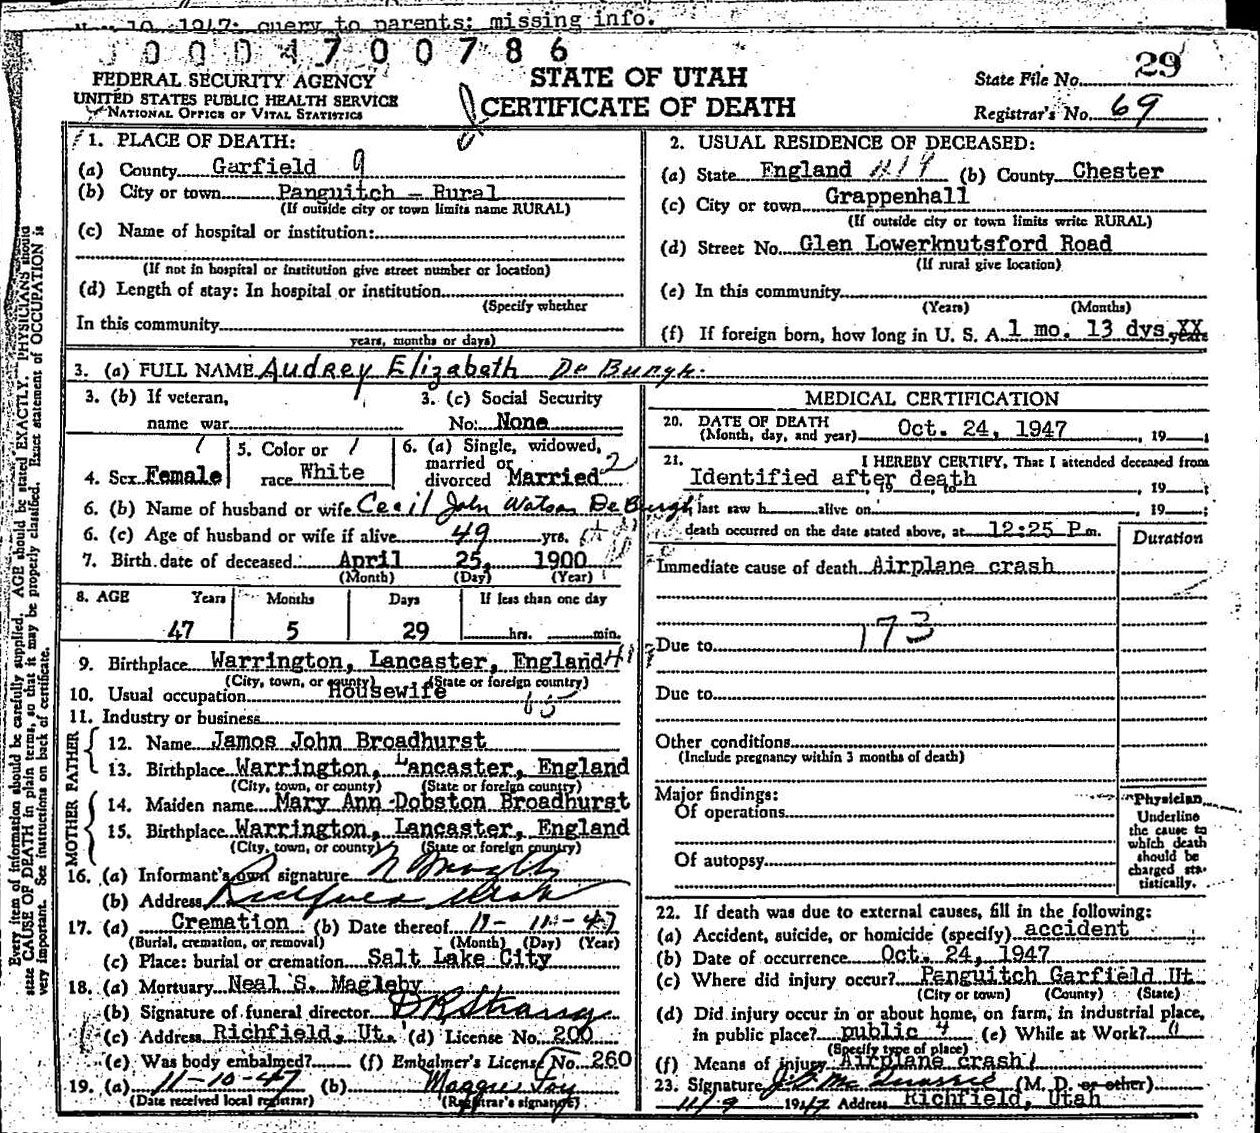 1947: query to parents: missing info.
0004700786
FEDERAL SECURITY AGENCY
UNITED STATES PUBLIC HEALTH SERVICE
NATIONAL OFFICE OF VITAL STATISTICS
STATE OF UTAH
CERTIFICATE OF DEATH
State File No. 29
Registrar's No. 69
1. PLACE OF DEATH:
(a) County Garfield 9
(b) City or town Panguitch — Rural
(If outside city or town limits name RURAL)
(c) Name of hospital or institution:
(If not in hospital or institution give street number or location)
(d) Length of stay: In hospital or institution
(Specify whether
In this community
years, months or days)
2. USUAL RESIDENCE OF DECEASED:
(a) State England (b) County Chester
(c) City or town Grappenhall
(If outside city or town limits write RURAL)
(d) Street No. Glen Lowerknutsford Road
(If rural give location)
(e) In this community
(Years) (Months)
(f) If foreign born, how long in U. S. A. 1 mo. 13 dys. XX years
3. (a) FULL NAME Audrey Elizabeth De Burgh.
3. (b) If veteran, name war
3. (c) Social Security No. None
4. Sex Female
5. Color or race White
6. (a) Single, widowed, married or divorced Married 2
6. (b) Name of husband or wife Cecil John Watson De Burgh
6. (c) Age of husband or wife if alive 49 yrs.
7. Birth date of deceased: April 25, 1900
(Month) (Day) (Year)
8. AGE Years Months Days If less than one day
47 5 29 hrs. min.
9. Birthplace Warrington, Lancaster, England
(City, town, or county) (State or foreign country)
10. Usual occupation Housewife
11. Industry or business
FATHER
12. Name Jamos John Broadhurst
13. Birthplace Warrington, Lancaster, England
(City, town, or county) (State or foreign country)
MOTHER
14. Maiden name Mary Ann Dobston Broadhurst
15. Birthplace Warrington, Lancaster, England
(City, town, or county) (State or foreign country)
16. (a) Informant's own signature
(b) Address Richfield Utah
17. (a) Cremation (b) Date thereof 11-11-47
(Burial, cremation, or removal) (Month) (Day) (Year)
(c) Place: burial or cremation Salt Lake City
18. (a) Mortuary Neal S. Magleby
(b) Signature of funeral director
(c) Address Richfield, Ut. (d) License No. 200
(e) Was body embalmed? (f) Embalmer's License No. 260
19. (a) 11-10-47 (b) Maggie Foy
(Date received local registrar) (Registrar's signature)
MEDICAL CERTIFICATION
20. DATE OF DEATH
(Month, day, and year) Oct. 24, 1947, 19
21. I HEREBY CERTIFY, That I attended deceased from
Identified after death, 19
I last saw h alive on, 19
death occurred on the date stated above, at 12:25 P.m.
Duration
Immediate cause of death Airplane crash
173
Due to
Due to
Other conditions
(Include pregnancy within 3 months of death)
Major findings:
Of operations
Of autopsy
Physician
Underline
the cause to
which death
should be
charged sta-
tistically.
22. If death was due to external causes, fill in the following:
(a) Accident, suicide, or homicide (specify) accident
(b) Date of occurrence Oct. 24, 1947
(c) Where did injury occur? Panguitch Garfield Ut.
(City or town) (County) (State)
(d) Did injury occur in or about home, on farm, in industrial place,
in public place? public 4 (e) While at Work? 0
(Specify type of place)
(f) Means of injury Airplane crash
23. Signature (M. D. or other)
11/9 1947 Address Richfield, Utah
Every item of information should be carefully supplied. AGE should be stated EXACTLY. PHYSICIANS should
state CAUSE OF DEATH in plain terms, so that it may be properly classified. Exact statement of OCCUPATION is
very important. See instructions on back of certificate.